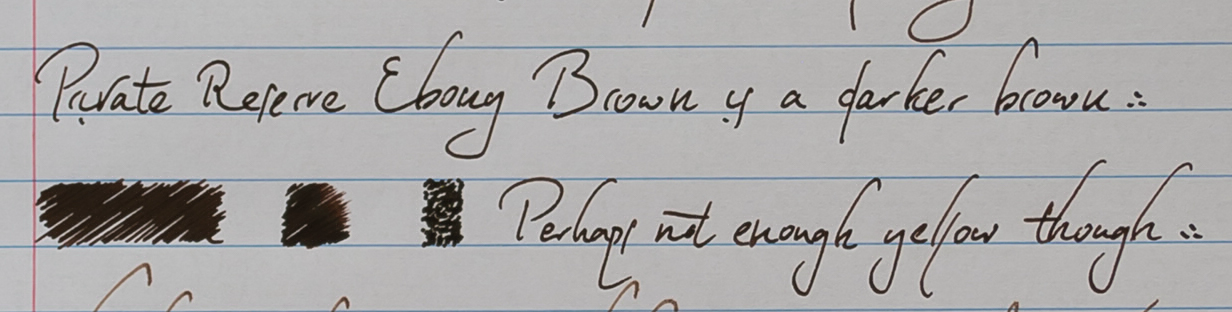 Private Reserve Ebony Brown is a darker brown :.
Perhaps not enough yellow though :.